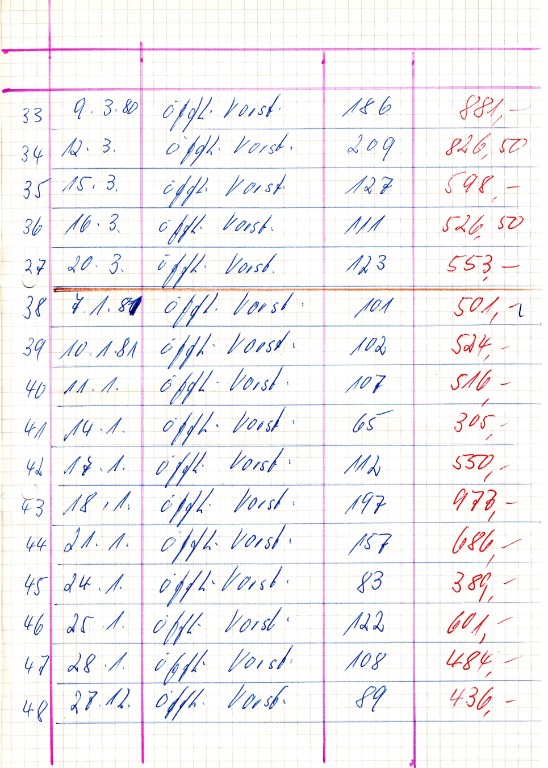 33 9.3.80 öffl. Vorst. 186 881,-
34 12.3. öffl. Vorst. 209 826,50
35 15.3. öffl. Vorst. 127 598,-
36 16.3. öffl. Vorst. 111 526,50
27 20.3. öffl. Vorst. 123 553,-
38 7.1.81 öffl. Vorst. 101 501,-
39 10.1.81 öffl. Vorst. 102 524,-
40 11.1. öffl. Vorst. 107 516,-
41 14.1. öffl. Vorst. 65 305,-
42 17.1. öffl. Vorst. 112 550,-
43 18.1. öffl. Vorst. 197 973,-
44 21.1. öffl. Vorst. 157 686,-
45 24.1. öffl. Vorst. 83 389,-
46 25.1. öffl. Vorst. 122 601,-
47 28.1. öffl. Vorst. 108 484,-
48 27.12. öffl. Vorst. 89 436,-